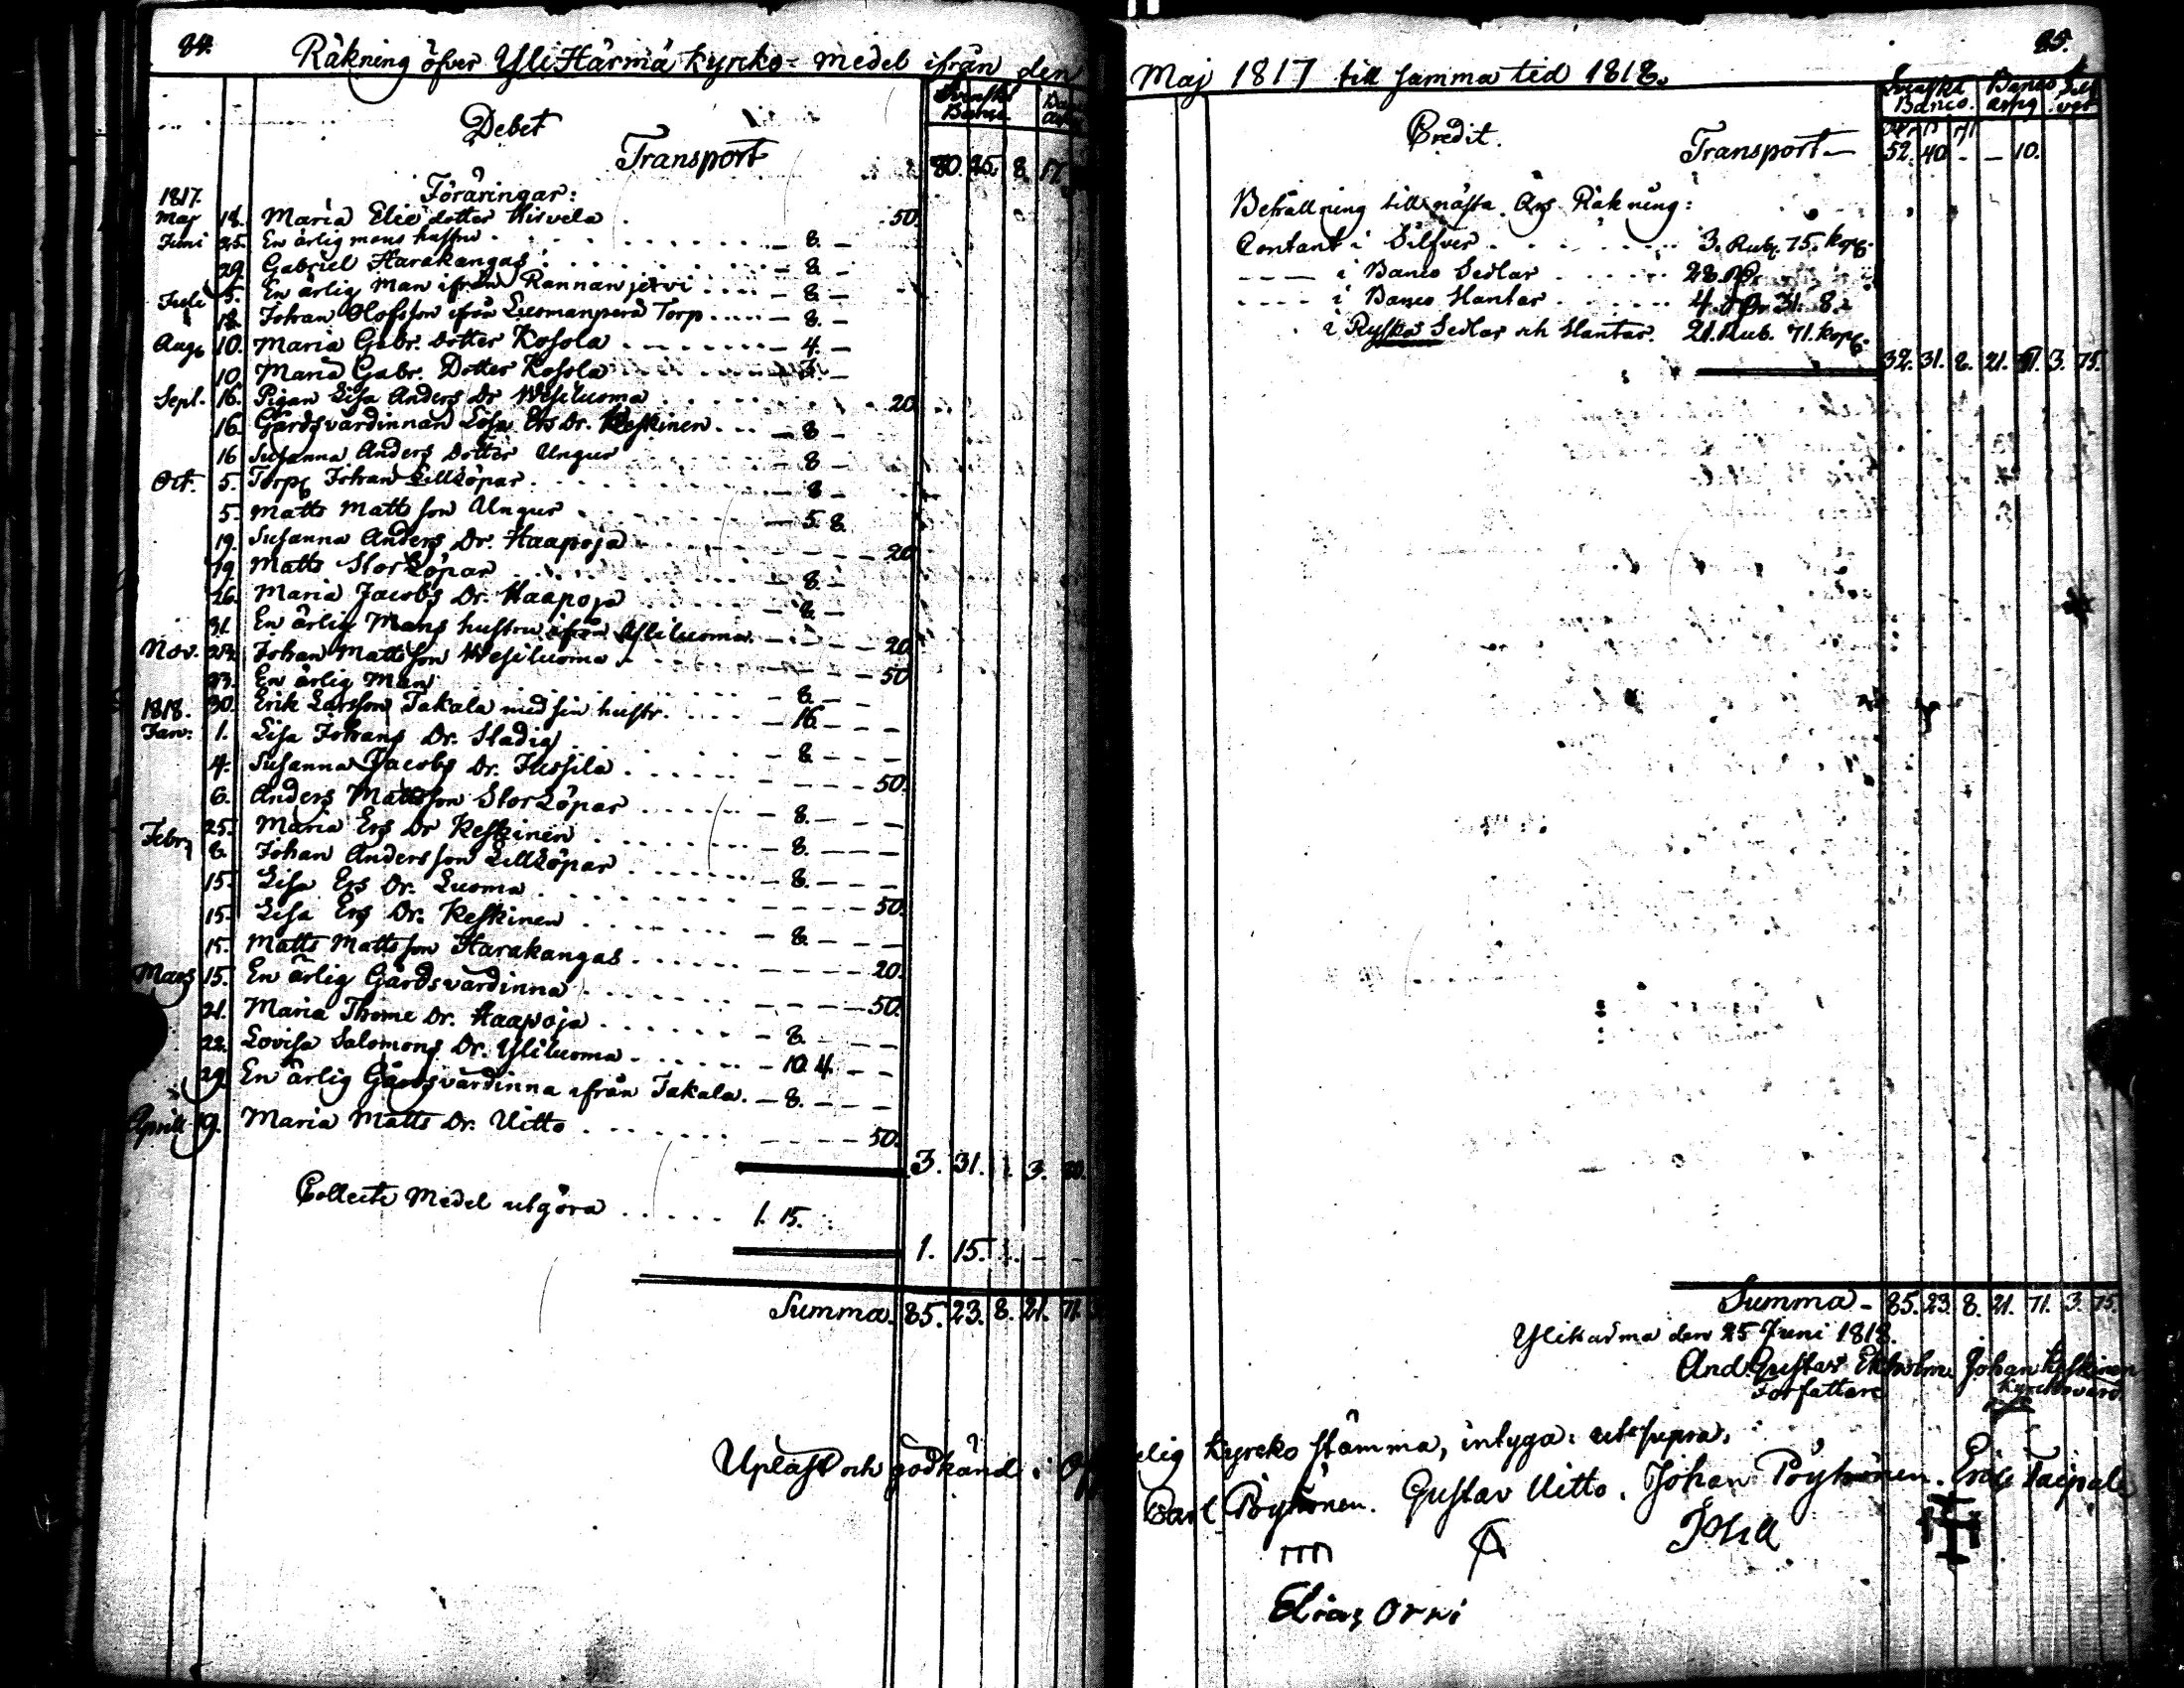 84.
Räkning öfver YliHärmä kyrko-medel ifrån den
Svenska Banco
Debet
Transport 80. 25. 8. 17.
1817. Föräringar:
Maj 18. Maria Elie dotter Hirvela . 50.
Juni 25. En ärlig mans hustru . . . — 8. —
29. Gabriel Harakangas . . . — 8. —
Juli 5. En ärlig Man ifrån Rannanjervi . . . — 8. —
12. Johan Olofsson ifrån Luomanperä Torp . . . — 8. —
Aug. 10. Maria Gabr. dotter Kosola . . . — 4. —
10. Maria Gabr. Dotter Kosola . . . —
Sept. 16. Pigan Lisa Anders Dr Wesiluoma . . . 20.
16. Gårdsvärdinnan Lisa Ers Dr. Keskinen . . . — 8 —
16 Susanna Anders dotter Ungur . . . — 8 —
Oct. 5. Torp. Johan Lillköpar . . . — 8 —
5. Matts Mattsson Ungur . . . — 5. 8.
19. Susanna Anders Dr. Haapoja . . . 20.
19. Matts Storköpar . . . — 8. —
26. Maria Jacobs Dr. Haapoja . . . — 8. —
31. En ärlig Mans hustru ifrån Yliluoma . . . 20.
Nov. 23. Johan Mattsson Wesiluoma . . . 50
23. En ärlig Man . . . — 8. — —
30. Erik Larsson Takala med sin hustr. . . . — 16. — —
1818.
Janv: 1. Lisa Johans Dr. Stadig . . . — 8. — —
4. Susanna Jacobs Dr. Jussila . . . 50.
6. Anders Mattsson Storköpar . . . — 8. — —
25. Maria Ers Dr Keskinen . . . — 8. — —
Febr. 8. Johan Andersson Lillköpar . . . — 8. — —
15. Lisa Ers Dr. Luoma . . . 50.
15. Lisa Ers Dr. Keskinen . . . — 8. — —
15. Matts Mattsson Harakangas . . . 20.
Mars 15. En ärlig Gårdsvärdinna . . . 50.
21. Maria Thome Dr. Haapoja . . . — 8. — —
22. Lovisa Salomons Dr. Yliluoma . . . — 10. 4. — —
29 En ärlig Gårdsvärdinna ifrån Takala. — 8. — —
Aprill 19. Maria Matts Dr. Uitto . . . 50.
3. 31. 1. 3. 80.
Collecte Medel utgöra . . . 1. 15.
1. 15. — —
Summa. 85. 23. 8. 21. 71.
Upläst och godkänd i
85.
Maj 1817 till samma tid 1818.
Svenska Banco. Banco assig Silfver
Credit.
Transport — 52. 40 - — 10.
Behållning till nästa Års Räkning:
Contant i Silfver . . . 3. Rub. 75. kop.
— — i Banco Sedlar . . . 28.
- - - i Banco Slantar . . . 4. 31. 8.
i Ryska Sedlar och Slantar. 21. Rub. 71. kop.
32. 31. 8. 21. 71. 3. 75.
Summa - 85. 23. 8. 21. 71. 3. 75.
Ylihärma den 25 Juni 1818.
And. Gustav Ekholm Johan Keskinen
Författare Kyrckovärd
elig kyrcko stämma, intyga: ut supra.
Carl Pöyhönen. Gustav Uitto. Johan Pöyhönen. Eric Taipale
Elias Orri